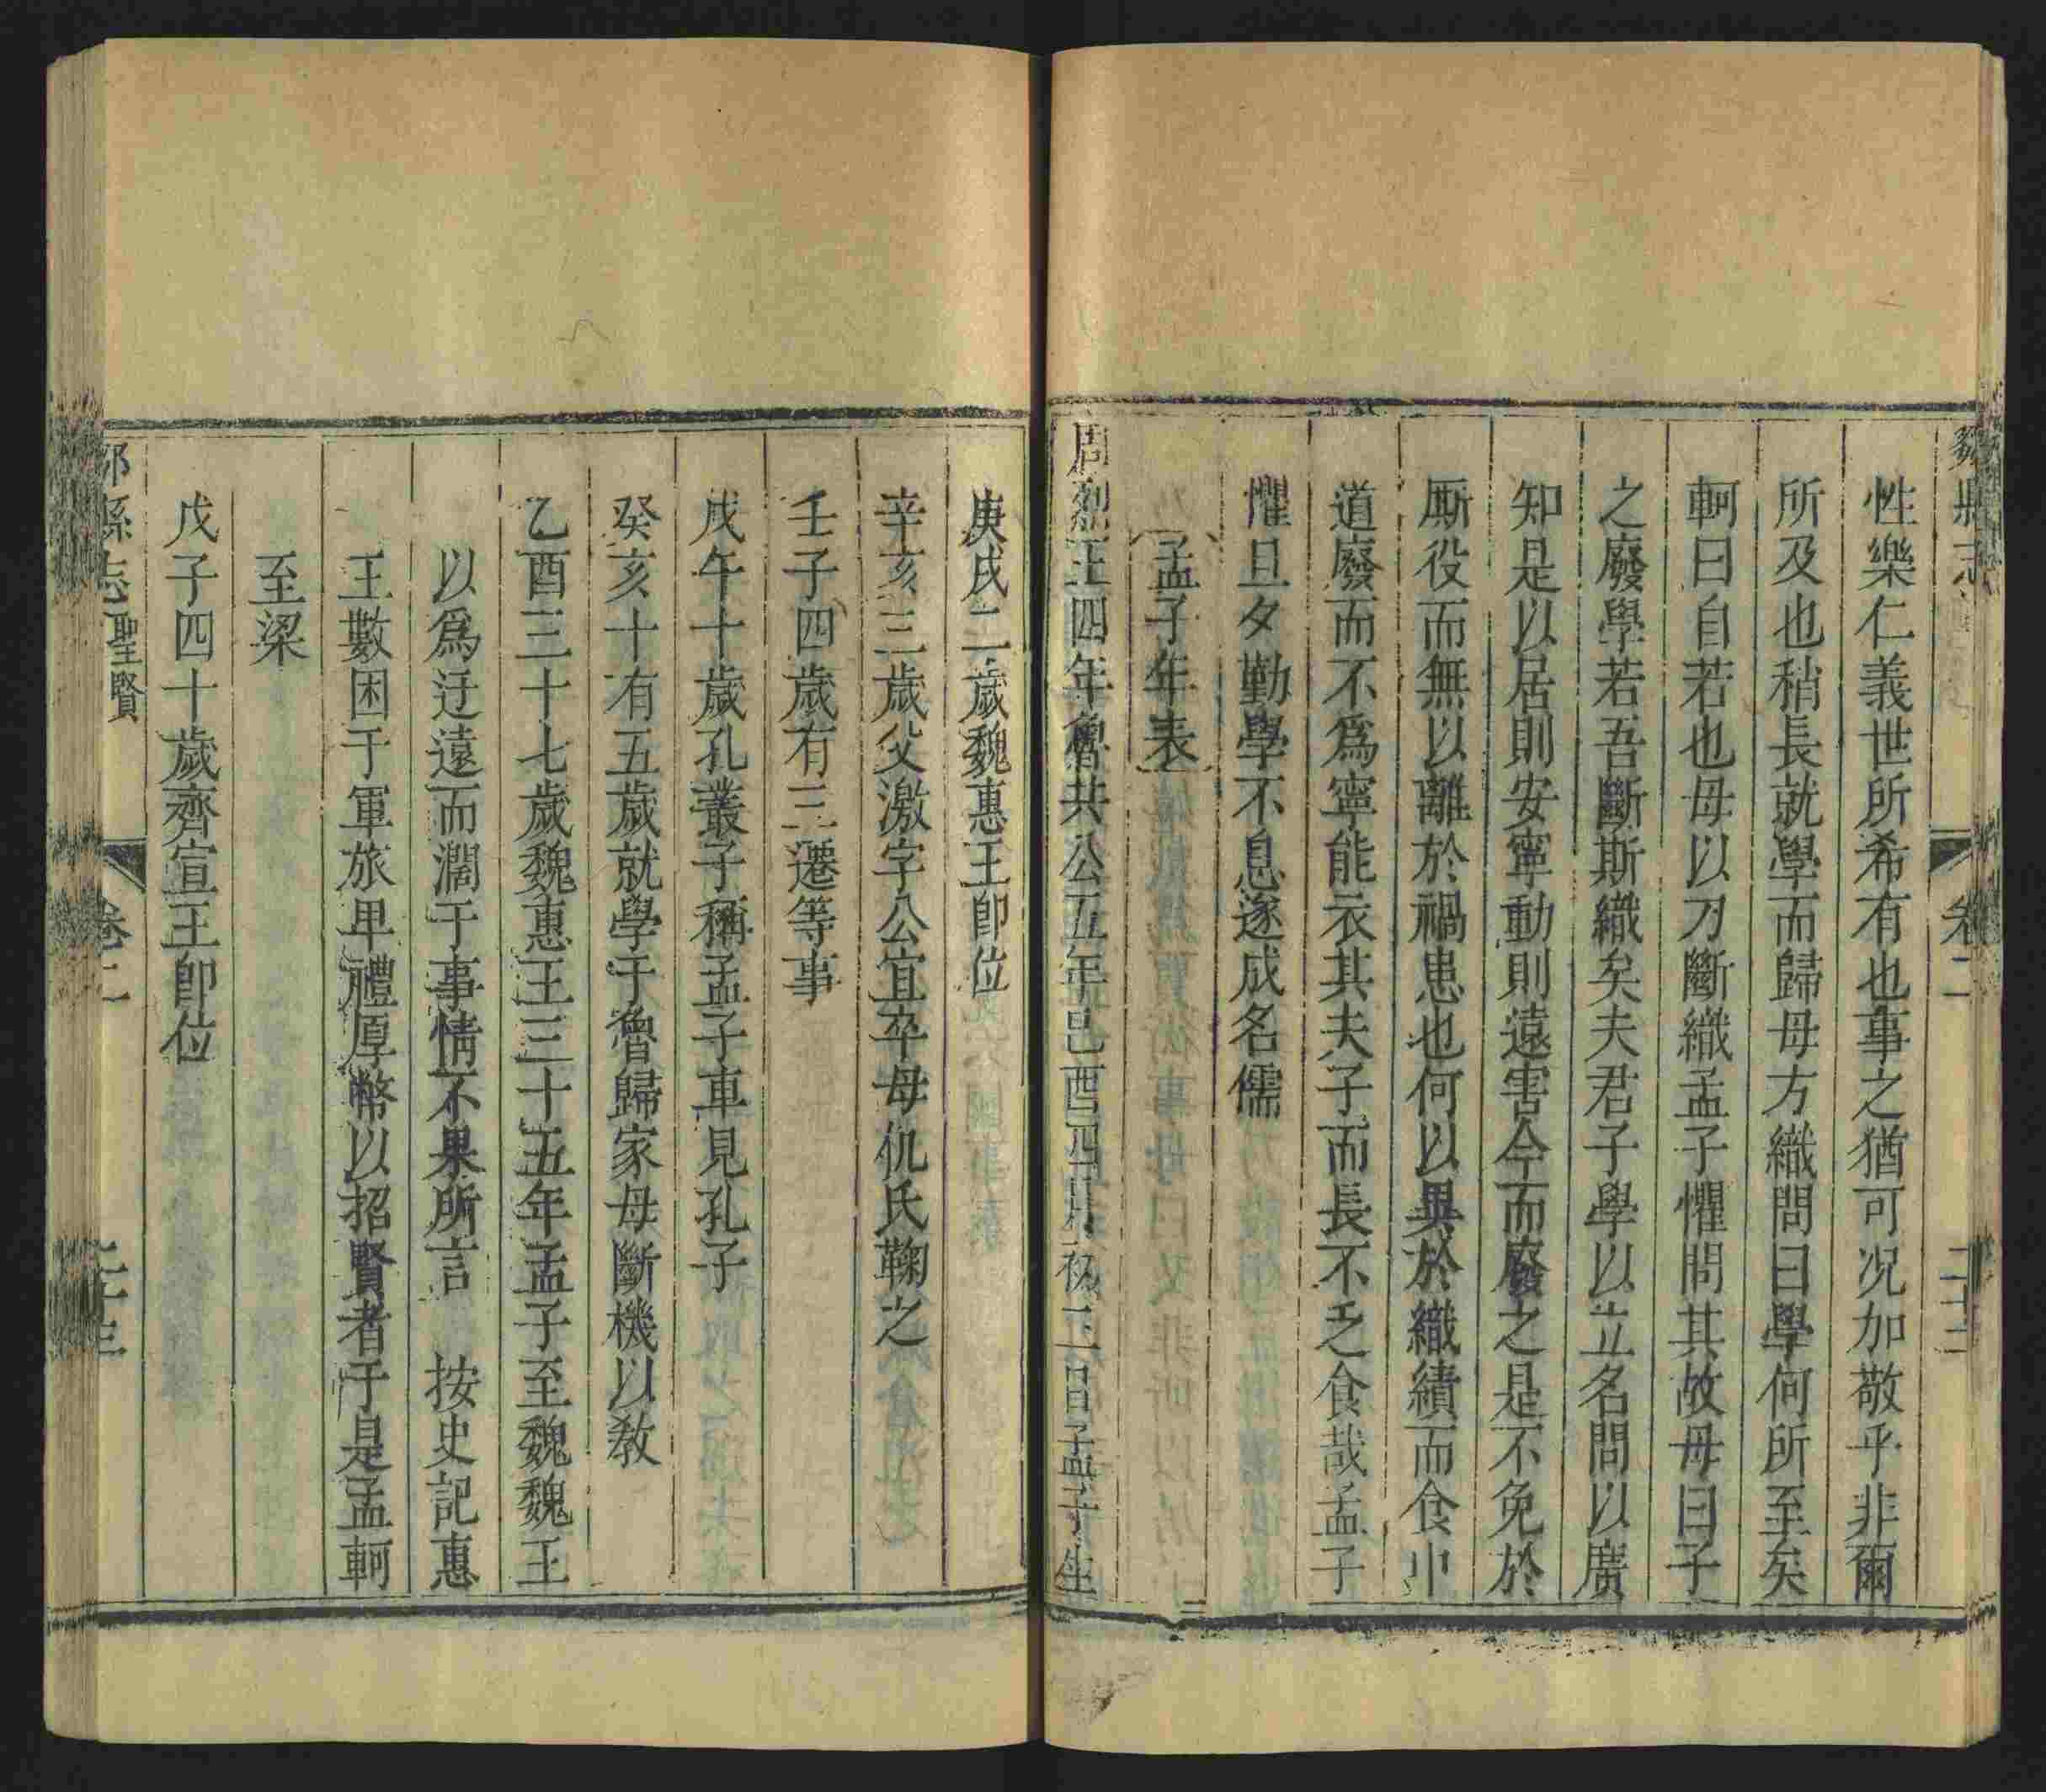 鄒縣志 卷二 二十二
性樂仁義世所希有也事之猶可况加敬乎非爾
所及也稍長就學而歸母方織問曰學何所至矣
軻曰自若也母以刀斷織孟子懼問其故母曰子
之廢學若吾斷斯織矣夫君子學以立名問以廣
知是以居則安寧動則遠害今而廢之是不免於
厮役而無以離於禍患也何以異於織績而食中
道廢而不爲寧能衣其夫子而長不乏食哉孟子
懼旦夕勤學不息遂成名儒
孟子年表
周烈王四年魯共公五年己酉四月初二日孟子生
庚戌二歲魏惠王卽位
辛亥三歲父激字公宜卒母仉氏鞠之
壬子四歲有三遷等事
戊午十歲孔叢子稱孟子車見孔子
癸亥十有五歲就學于魯歸家母斷機以敎
乙酉三十七歲魏惠王三十五年孟子至魏魏王
以爲迂遠而濶于事情不果所言 按史記惠
王數困于軍旅卑禮厚幣以招賢者于是孟軻
至梁
戊子四十歲齊宣王卽位
縣志 聖賢 卷二